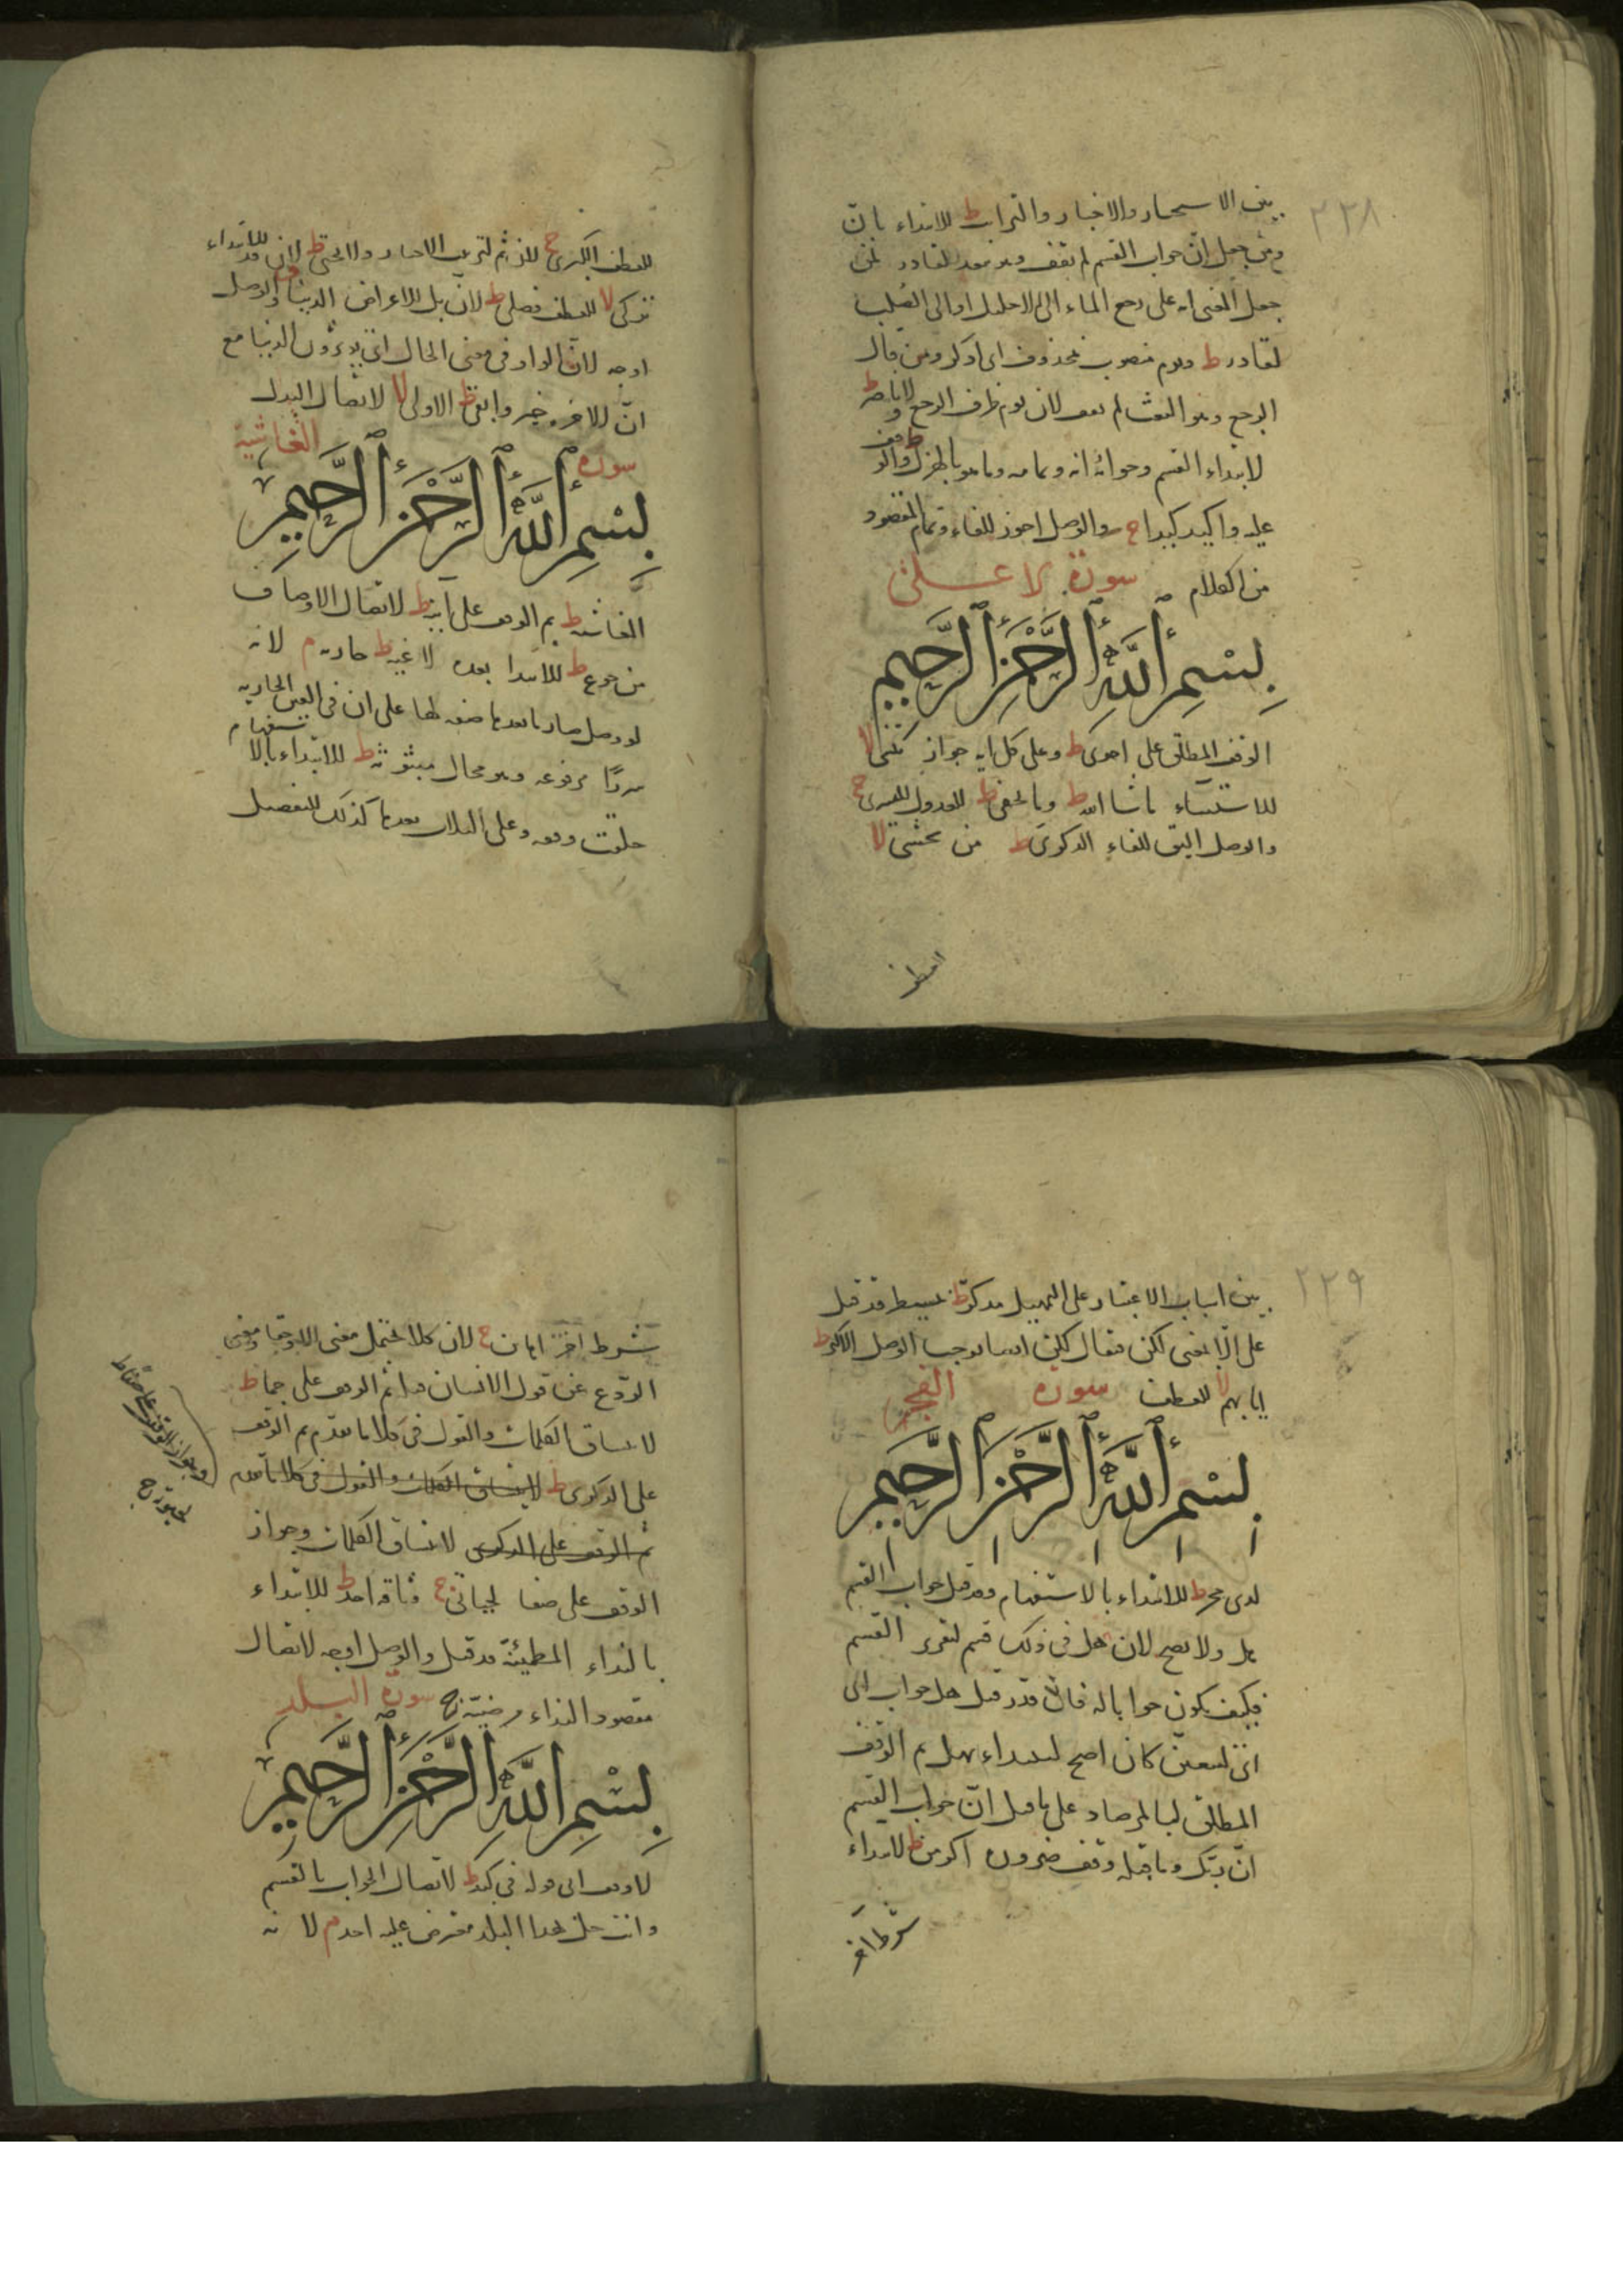 ٢٢٨
بين الاستخبار والاخبار والترائب ط للابتداء بان
ومن جعل ان جواب القسم لم يقف وهو بعيد لقادر لمن
جعل المعنى انه على رجع الماء الى الاحليل او الى الصلب
لقادر ط ويوم منصوب بمحذوف اى اذكر ومن قال
الرجع وهو البعث لم يقف لان يوم ظرف الرجع ولا ناصر ط
لابتداء القسم وجوابه انه وتمامه وما هو بالهزل ط والوقف
عليه واكيد كيدا ج والوصل اجوز للفاء وتمام المقصود
من الكلام سورة الاعلى
بِسْمِ اللَّهِ الرَّحْمَنِ الرَّحِيمِ
الوقف المطلق على احوى ط وعلى كل اية جواز تنسى لا
للاستثناء ما شا الله ط وما يخفى ط للعدول لليسرى ج
والوصل اليق للفاء الذكرى ط من يخشى لا
للعطف الكبرى ج لان ثم لترتيب الاخبار ولا يحيى ط لان قد للابتداء
تزكى لا للعطف فصلى ط لان بل للاعراض الدنيا والوصل
اوجه لان الواو فى معنى الحال اى يؤثرون الدنيا مع
ان الاخرة خير وابقى ط الاولى لا لاتصال البدل
سورة الغاشية
بِسْمِ اللَّهِ الرَّحْمَنِ الرَّحِيمِ
الغاشية ط ثم الوقف على انية ط لاتصال الاوصاف
من جوع ط للابتدا بعده لاغية ط جارية م لانه
لو وصل صار ما بعدها صفة لها على ان فى العين الجارية
سررا مرفوعة وهو محال مبثوثة ط للابتداء بالاستفهام
خلقت وقفة وعلى الثلاث بعدها كذلك للتفصيل
٢٢٩
بين اسباب الاعتبار على التمهيل مذكر ط بمسيطر قد قيل
على الا بمعنى لكن فيقال لكن ايضا توجب الوصل الاكبر ط
ايابهم لا للعطف سورة الفجر
بِسْمِ اللَّهِ الرَّحْمَنِ الرَّحِيمِ
لذى حجر ط للابتداء بالاستفهام وقد قيل جواب القسم
هل ولا يصح لان هل فى ذلك قسم لتقرير القسم
فكيف يكون جوابا له فان قدر قبل هل جواب اى
اى لتبعثن كان اصح لابتداء بهل ثم الوقف
المطلق لبالمرصاد على ما قيل ان جواب القسم
ان ربك وما قبله وقف ضرورة اكرمن ط لابتداء
شرط اخر
شرط اخر اهانن ج لان كلا يحتمل معنى الا وحقا ومعنى
الردع عن قول الانسان هذا ثم الوقف على جما ط
لاتساق الكلمات والقول فى كلا ما تقدم ثم الوقف
على الذكرى ط لاتساق الكلمات والقول فى كلا ما تقدم
ثم الوقف على الذكرى لاتساق الكلمات وجواز
الوقف على صفا لحياتى ج وثاقه احد ط للابتداء
بالنداء المطمئنة قد قيل والوصل اوجه لاتصال
مقصود النداء مرضية ج سورة البلد
بِسْمِ اللَّهِ الرَّحْمَنِ الرَّحِيمِ
لا وقف الى قوله فى كبد ط لاتصال الجواب بالقسم
وانت حل بهذا البلد معترض عليه احد م لانه
وجواز الوقف على صفا صفا ط